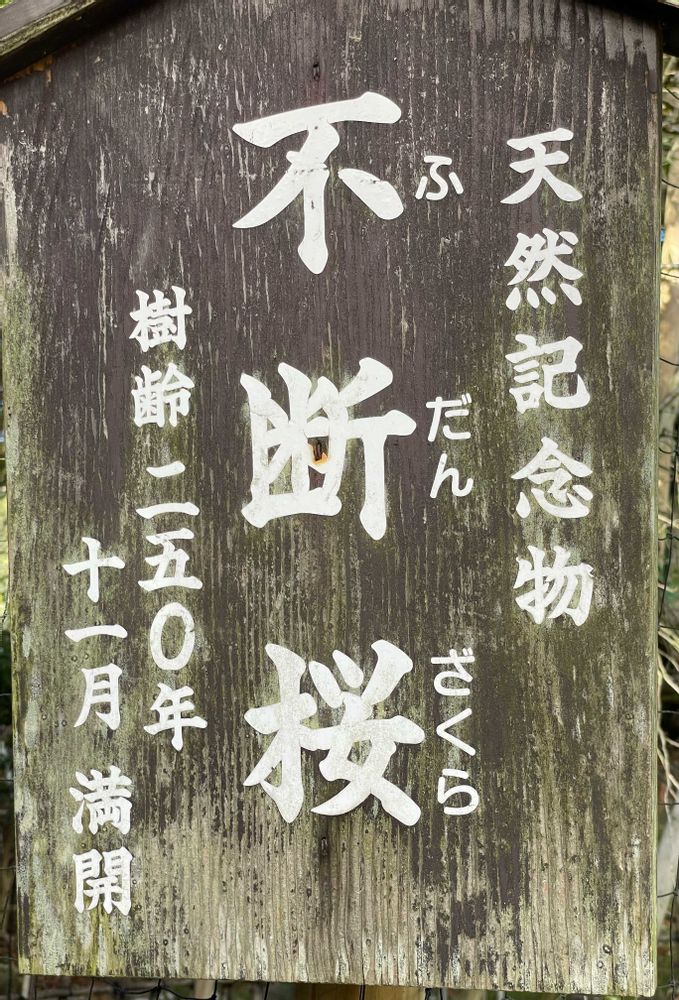 天然記念物
不断桜
ふだんざくら
樹齢 二五〇年
十一月 満開